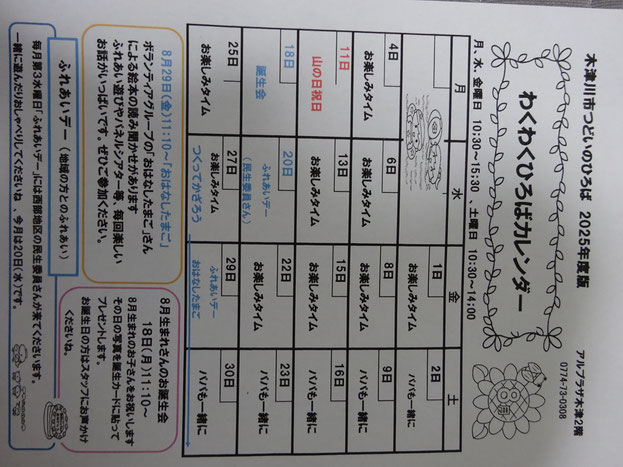 木津川市つどいのひろば 2025年度版
アルプラザ木津2階
0774-73-0308
わくわくひろばカレンダー
月、水、金曜日 10:30~15:30 、土曜日 10:30~14:00
月 水 金 土
1日 2日
お楽しみタイム パパも一緒に
4日 6日 8日 9日
お楽しみタイム お楽しみタイム お楽しみタイム パパも一緒に
11日 13日 15日 16日
山の日祝日 お楽しみタイム お楽しみタイム パパも一緒に
18日 20日 22日 23日
誕生会 ふれあいデー お楽しみタイム パパも一緒に
(民生委員さん)
25日 27日 29日 30日
お楽しみタイム お楽しみタイム ふれあいデー パパも一緒に
つくってかざろう おはなしたまご
8月29日(金)11:10~「おはなしたまご」
ボランティアグループの「おはなしたまご」さん
による絵本の読み聞かせがあります
ふれあい遊びやパネルシアター等、毎回楽しい
お話がいっぱいです。ぜひご参加ください。
8月生まれさんのお誕生会
18日(月)11:10~
8月生まれのお子さんをお祝いします
その日の写真を誕生カードに貼って
プレゼントします。
お誕生日の方はスタッフにお声かけ
くださいね。
ふれあいデー (地域の方とのふれあい)
毎月第3水曜日「ふれあいデー」には西部地区の民生委員さんが来てくださいます。
一緒に遊んだりおしゃべりしてくださいね 、今月は20日(水)です。